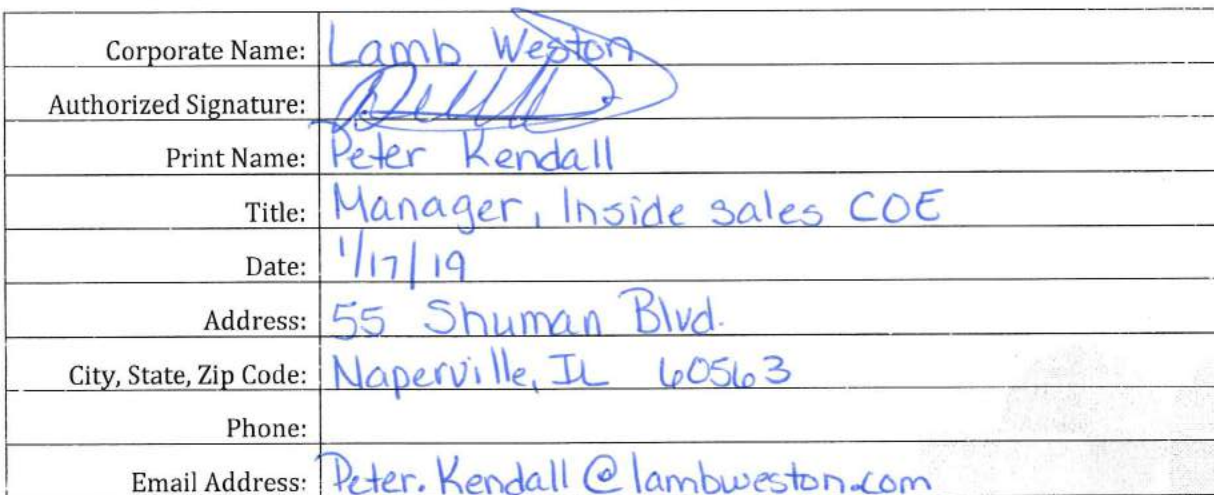 Corporate Name: Lamb Weston
Authorized Signature:
Print Name: Peter Kendall
Title: Manager, Inside sales COE
Date: 1/17/19
Address: 55 Shuman Blvd.
City, State, Zip Code: Naperville, IL 60563
Phone:
Email Address: Peter.Kendall@lambweston.com